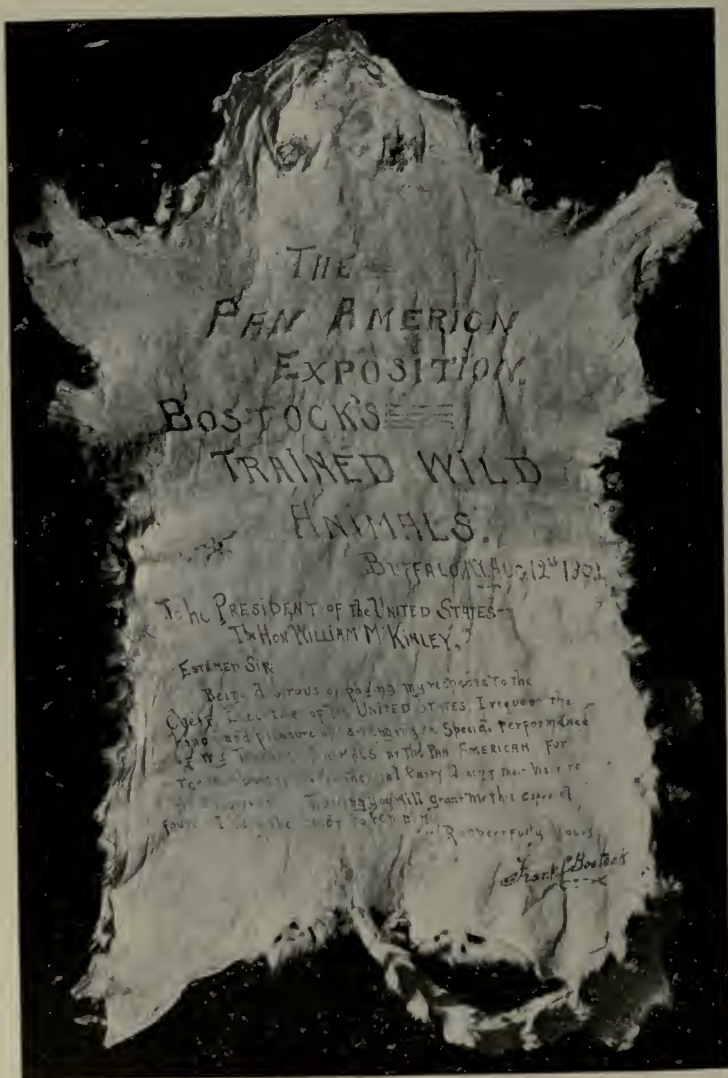 THE
PAN AMERICAN
EXPOSITION.
BOSTOCK'S
TRAINED WILD
ANIMALS.
BUFFALO N.Y. AUG. 12th 1901
To the PRESIDENT of the UNITED STATES—
The HON WILLIAM McKINLEY,
ESTEEMED SIR:
Being desirous of paying my respects to the
Chief of the UNITED STATES, I request the
honor and pleasure of arranging a Special Performance
of my ANIMALS at the PAN AMERICAN for
Party during their Visit to
Trusting you will grant me this especial
favor I
Respectfully Yours,
Frank C Bostock